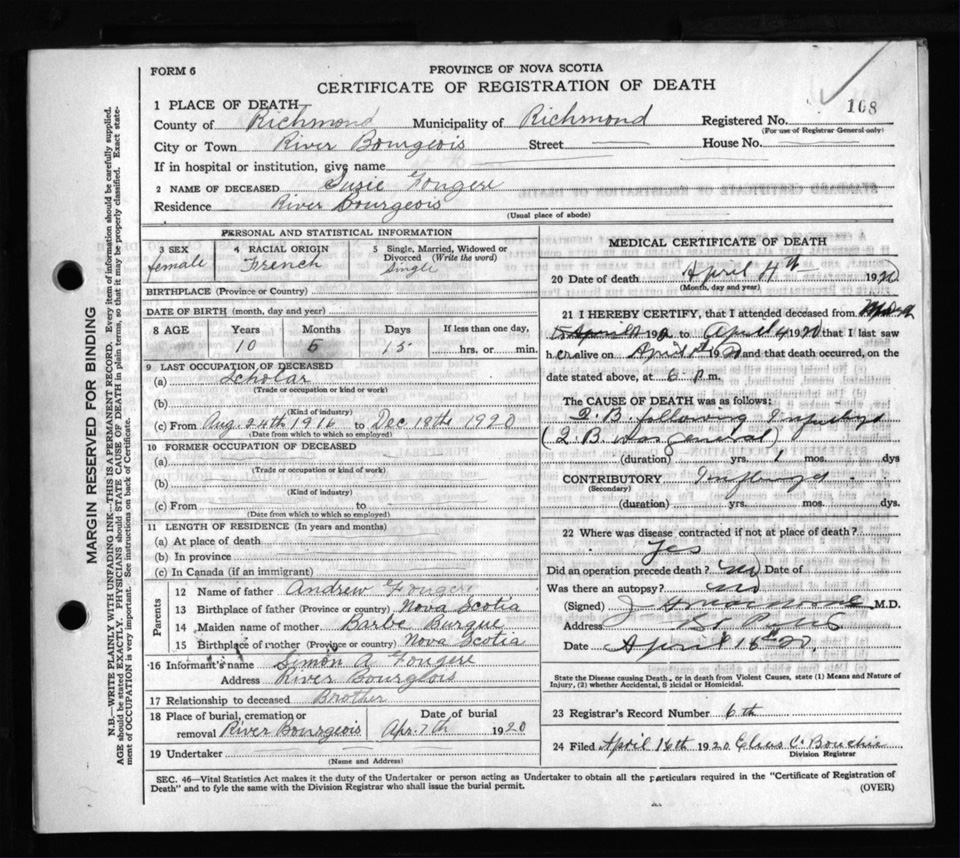 FORM 6
PROVINCE OF NOVA SCOTIA
CERTIFICATE OF REGISTRATION OF DEATH
108
1 PLACE OF DEATH
County of Richmond Municipality of Richmond Registered No.
(For use of Registrar General only)
City or Town River Bourgeois Street House No.
If in hospital or institution, give name
2 NAME OF DECEASED Susie Fougere
Residence River Bourgeois
(Usual place of abode)
PERSONAL AND STATISTICAL INFORMATION
3 SEX female
4 RACIAL ORIGIN French
5 Single, Married, Widowed or Divorced (Write the word) Single
BIRTHPLACE (Province or Country)
DATE OF BIRTH (month, day and year)
8 AGE Years Months Days If less than one day,
10 5 15 hrs. or min.
9 LAST OCCUPATION OF DECEASED
(a) Scholar
(Trade or occupation or kind or work)
(b)
(Kind of industry)
(c) From Aug. 24th 1916 to Dec 18th 1920
(Date from which to which so employed)
10 FORMER OCCUPATION OF DECEASED
(a)
(Trade or occupation or kind of work)
(b)
(Kind of industry)
(c) From to
(Date from which to which so employed)
11 LENGTH OF RESIDENCE (In years and months)
(a) At place of death
(b) In province
(c) In Canada (if an immigrant)
Parents
12 Name of father Andrew Fougere
13 Birthplace of father (Province or country) Nova Scotia
14 Maiden name of mother Barbe Burque
15 Birthplace of mother (Province or country) Nova Scotia
16 Informant's name Simon A. Fougere
Address River Bourgeois
17 Relationship to deceased Brother
18 Place of burial, cremation or removal River Bourgeois
Date of burial Apr. 7th 1920
19 Undertaker
(Name and Address)
MEDICAL CERTIFICATE OF DEATH
20 Date of death April 4th 1920
(Month, day and year)
21 I HEREBY CERTIFY, that I attended deceased from March
to April 4 1920 that I last saw
her alive on April 1920 and that death occurred, on the
date stated above, at 6 P.m.
The CAUSE OF DEATH was as follows:
T. B. following
(T. B. was general)
(duration) yrs. 1 mos. days
CONTRIBUTORY
(Secondary)
(duration) yrs. mos. dys.
22 Where was disease contracted if not at place of death?
Yes
Did an operation precede death? no Date of
Was there an autopsy? no
(Signed) M.D.
Address St Peters
Date April 16th 20.
State the Disease causing Death, or in death from Violent Causes, state (1) Means and Nature of
Injury, (2) whether Accidental, Suicidal or Homicidal.
23 Registrar's Record Number 6th
24 Filed April 16th 1920 C. Bouchie
Division Registrar
SEC. 46—Vital Statistics Act makes it the duty of the Undertaker or person acting as Undertaker to obtain all the particulars required in the "Certificate of Registration of
Death" and to fyle the same with the Division Registrar who shall issue the burial permit.
(OVER)
MARGIN RESERVED FOR BINDING
N.B.—WRITE PLAINLY WITH UNFADING INK—THIS IS A PERMANENT RECORD. Every item of information should be carefully supplied.
AGE should be stated EXACTLY. PHYSICIANS should STATE CAUSE OF DEATH in plain terms, so that it may be properly classified. Exact state-
ment of OCCUPATION is very important. See instructions on back of Certificate.